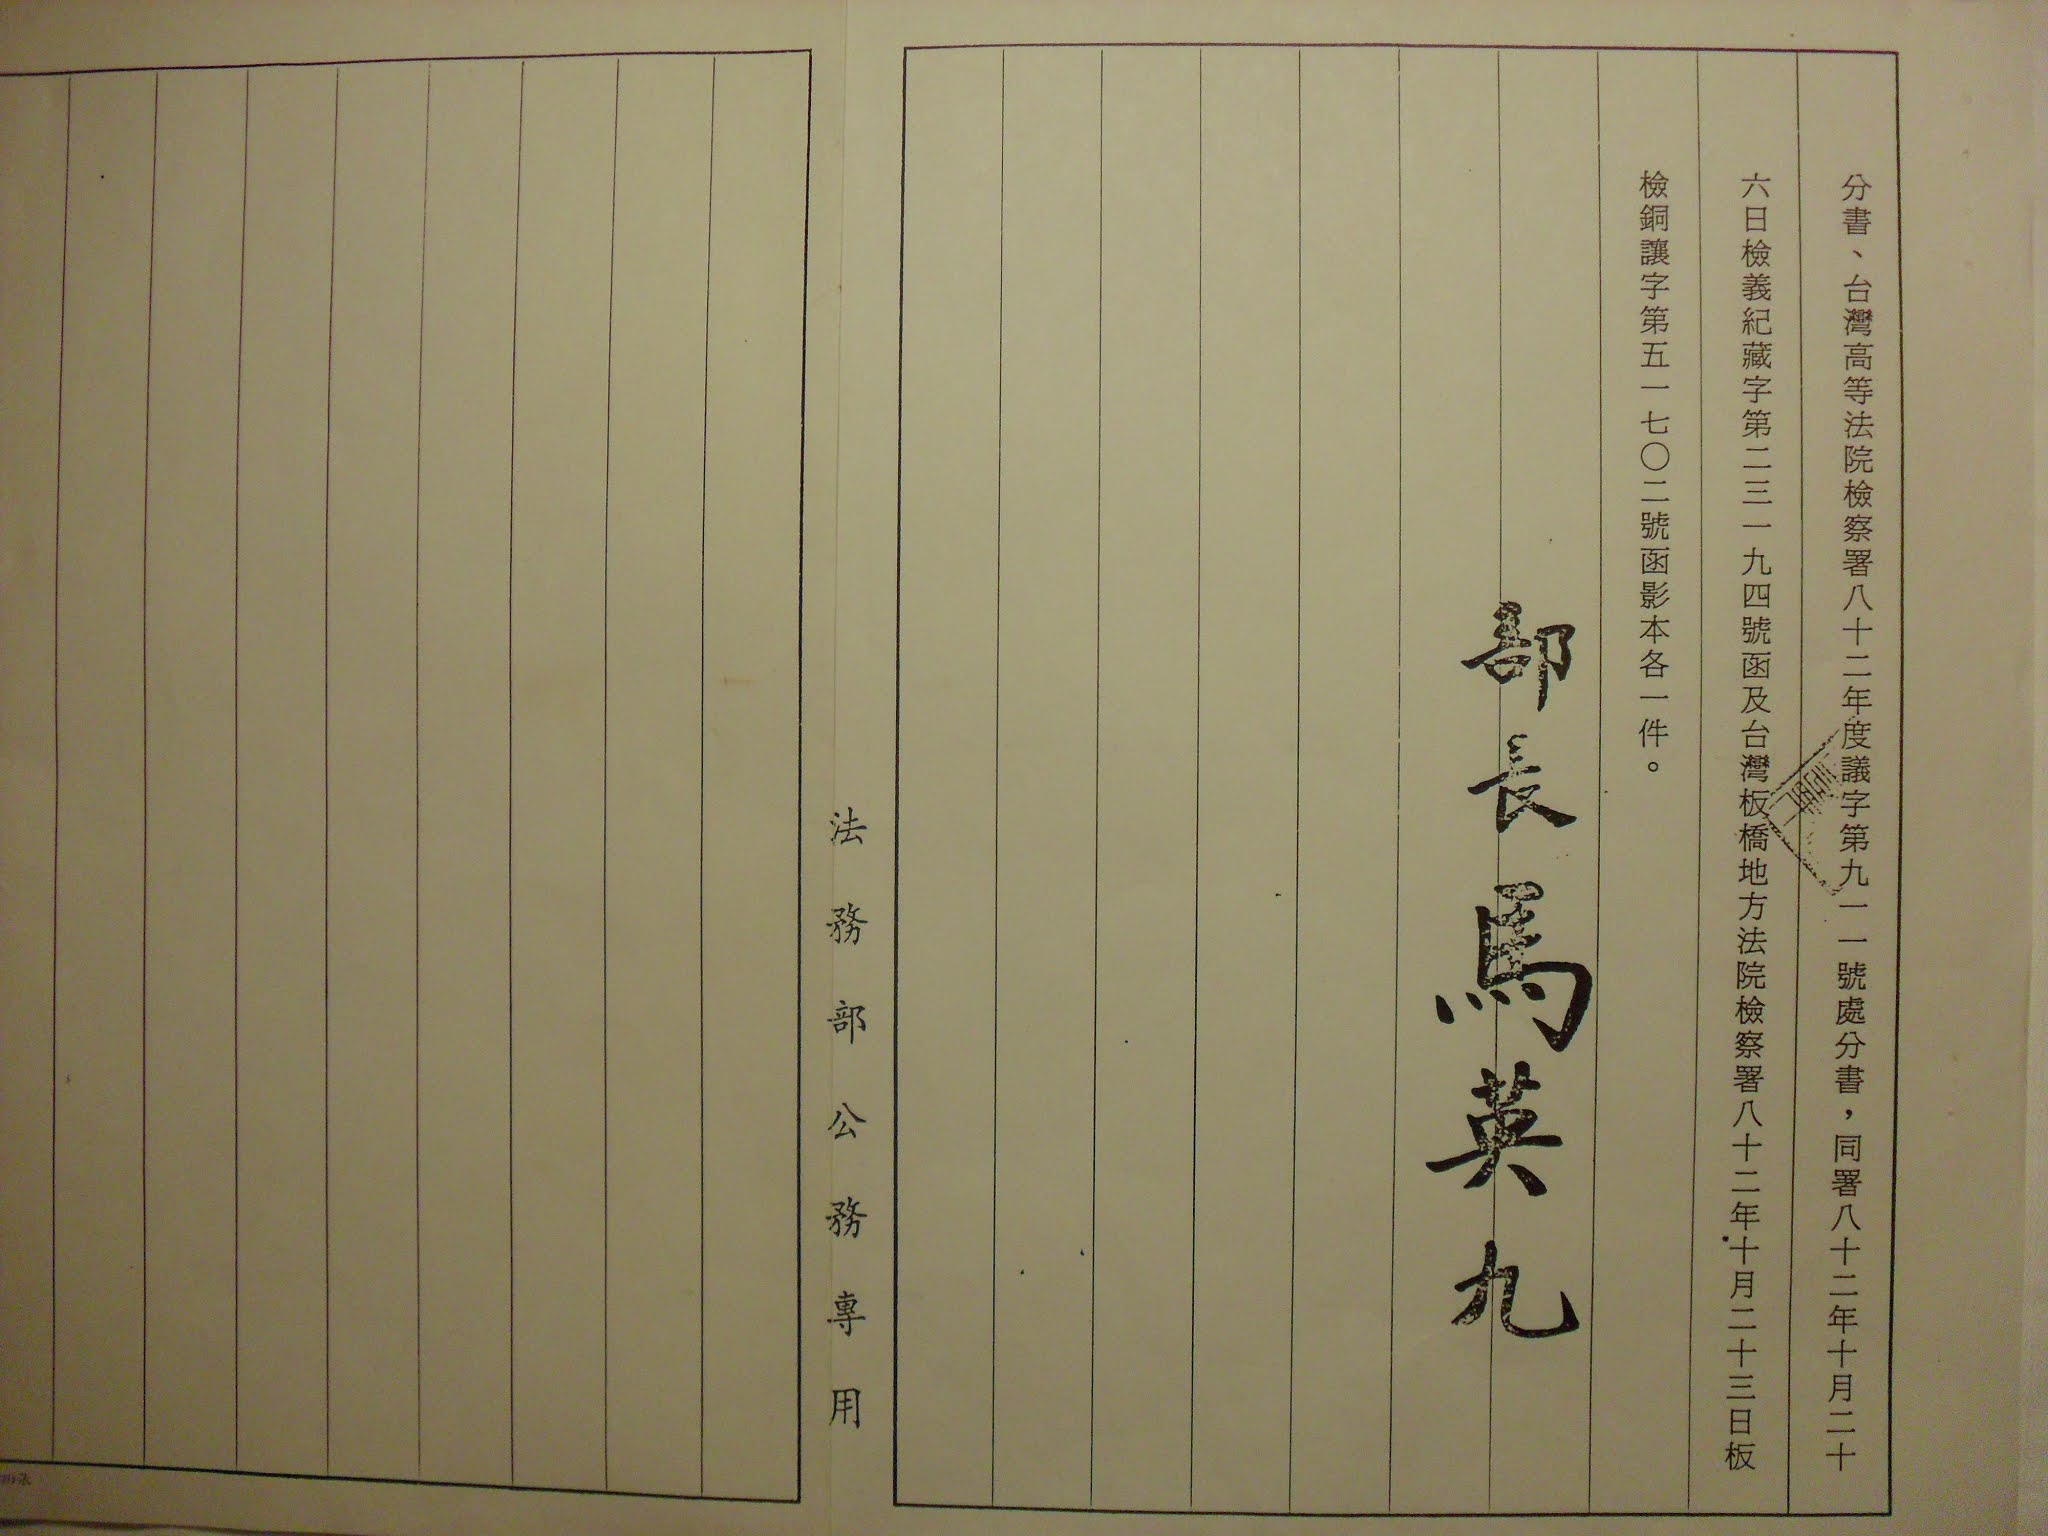 分書、台灣高等法院檢察署八十二年度議字第九一一號處分書，同署八十二年十月二十
六日檢義紀藏字第二三一九四號函及台灣板橋地方法院檢察署八十二年十月二十三日板
檢銅讓字第五一七〇二號函影本各一件。
部長馬英九
法務部公務專用